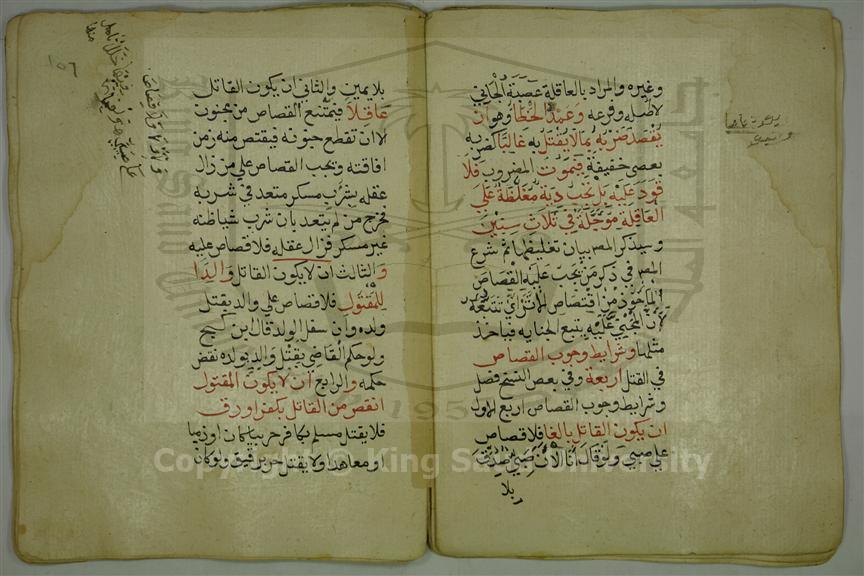 وغيره والمراد بالعاقلة عصبة الجاني
لاصله وفرعه وعمد الخطأ وهو ان
يقصد ضربه بما لا يقتل به غالبا كضربه
بعصى خفيفة فيموت المضروب فلا
قود عليه بل تجب دية مغلظة على
العاقلة مؤجلة في ثلاث سنين
وسيذكر المص بيان تغليظها ثم شرع
المص في ذكر من يجب عليه القصاص
المأخوذ من اقتصاص الاثر أي تتبعه
لأن المجني عليه يتبع الجناية فياخذ
مثلها وشرايط وجوب القصاص
في القتل اربعة وفي بعض النسخ فصل
وشرايط وجوب القصاص اربع الاول
ان يكون القاتل بالغا فلا قصاص
على صبي ولو قال انا الآن صبي صدق
بلا
بلا يمين والثاني ان يكون القاتل
عاقلا فيمتنع القصاص من مجنون
لا ان تقطع جنونه فيقتص منه زمن
افاقته ويجب القصاص علي من زال
عقله بشرب مسكر متعد في شربه
فخرج من لم يتعد بان شرب شيا ظنه
غير مسكر فزال عقله فلا قصاص عليه
والثالث ان لا يكون القاتل والدا
للمقتول فلا قصاص علي والد بقتل
ولده وان سفل الولد قال ابن كج
ولو حكم القاضي بقتل والد بولده نقض
حكمه والرابع ان لا يكون المقتول
انقص من القاتل بكفر او رق
فلا يقتل مسلم بكافر حربيا كان او ذميا
او معاهدا ولا يقتل حر برقيق ولو كان
١٥٦
Copyright © King Saud University
1957